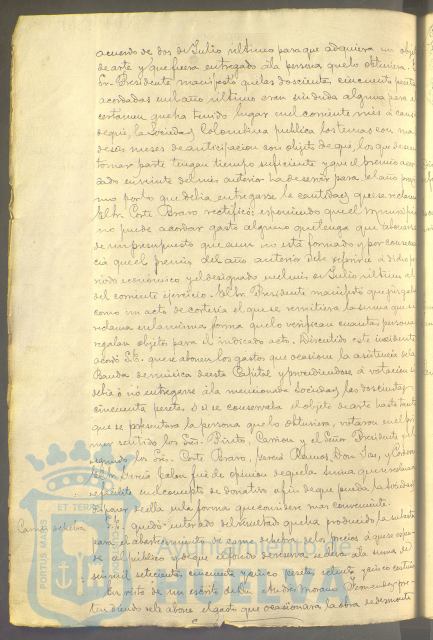 acuerdo de dos de Julio último para que adquiera un objeto
de arte y que fuera entregado á la persona que lo obtuviera. El
Sr. Presidente manifestó que las doscientas cincuenta pesetas
acordadas en el año último eran sin duda alguna para el
certamen que ha tenido lugar en el corriente mes á causa
de que la Sociedad Colombina publica los temas con mas
de seis meses de anticipacion con objeto de que los que deseen
tomar parte tengan tiempo suficiente y que el premio acor
dado en veinte del mes anterior ha de servir para el año proxi
mo por lo que debia entregarse la cantidad que se reclama
El Sr. Corte Bravo rectificó exponiendo que el municipio
no puede acordar gasto alguno que tenga que abonarse
de un presupuesto que aun no está formado y por consecuen
cia que el premio del año anterior debe referirse á dicho pe
riodo económico y el designado en el mes de Julio último al
del corriente ejercicio. El Sr. Presidente manifestó que juzgaba
como un acto de cortesia el que se remitiera la suma que se
reclama en la misma forma que lo verifican cuantas personas
regalan objetos para el indicado acto. Discutido este incidente
acordó S.E. que se abonen los gastos que ocasione la asistencia de la
Banda de música de esta Capital y procediendose á votacion si
debia ó nó entregarse á la mencionada Sociedad las doscientas
cincuenta pesetas ó si se conservaba el objeto de arte hasta tanto
que se presentara la persona que lo obtuviera, votaron en el pri
mer sentido los Sres. Carrion y el Señor Presidente y en el
segundo los Sres. Corte Bravo, Garcia Ramos, Don Jas, y
El Sr. fué de opinion de que la suma que se reclama
se remita en concepto de donativo á fin de que pueda la Sociedad
disponer de ella en la forma que considere mas conveniente.
S.E. quedó enterado del resultado que ha producido la subasta
para el abastecimiento de carne de hebra
al público
seis mil setecientas cincuenta y cinco pesetas setenta y cinco centimos
En vista de un escrito de Don Andrés Moreno
tendiendo se le abone el gasto que ocasionara la obra de desmonte
Carne de hebra
ET TERRAE
PORTUS MARIS
Ayuntamiento de
HUELVA